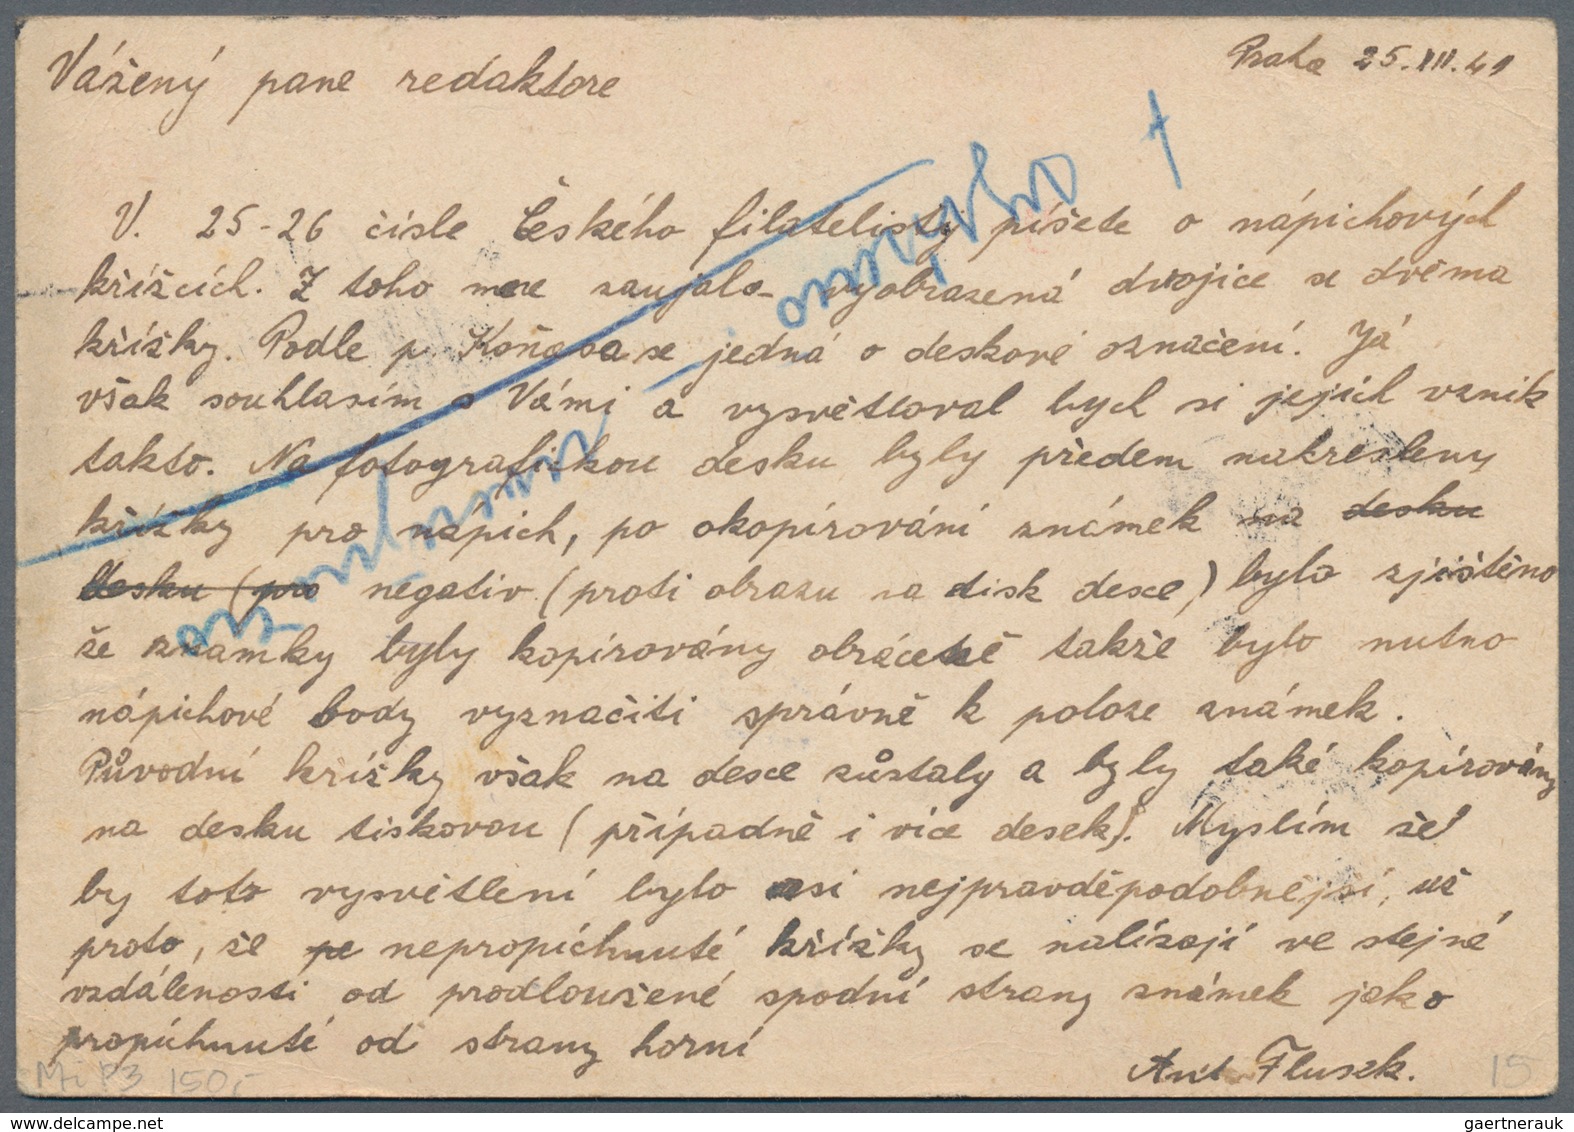 Praha 25.III.41
Vážený pane redaktore
V. 25-26 čísle Českého filatelisty píšete o nápichových
křížcích. Z toho mne zaujala vyobrazená dvojice se dvěma
křížky. Podle p. se jedná o deskové označení. Já
však souhlasím s Vámi a vysvětloval bych si jejich vznik
takto. Na fotografickou desku byly předem nakresleny
křížky pro napich, po okopírování známek na desku
desku (pro negativ (proti obrazu na disk desce) bylo zjištěno
že známky byly kopírovány obráceně takže bylo nutno
nápichové body vyznačiti správně k poloze známek.
Původní křížky však na desce zůstaly a byly také kopírovány
na desku tiskovou (případně i více desek). Myslím že
by toto vysvětlení bylo asi nejpravděpodobnější, už
proto, že pe nepropíchnuté křížky se nalízají ve stejné
vzdálenosti od prodloužené spodní strany známek jako
propíchnuté od strany horní
Ant Fluszk.
Mi P3 150,-
15
gaertnerauk @ www.delcampe.net